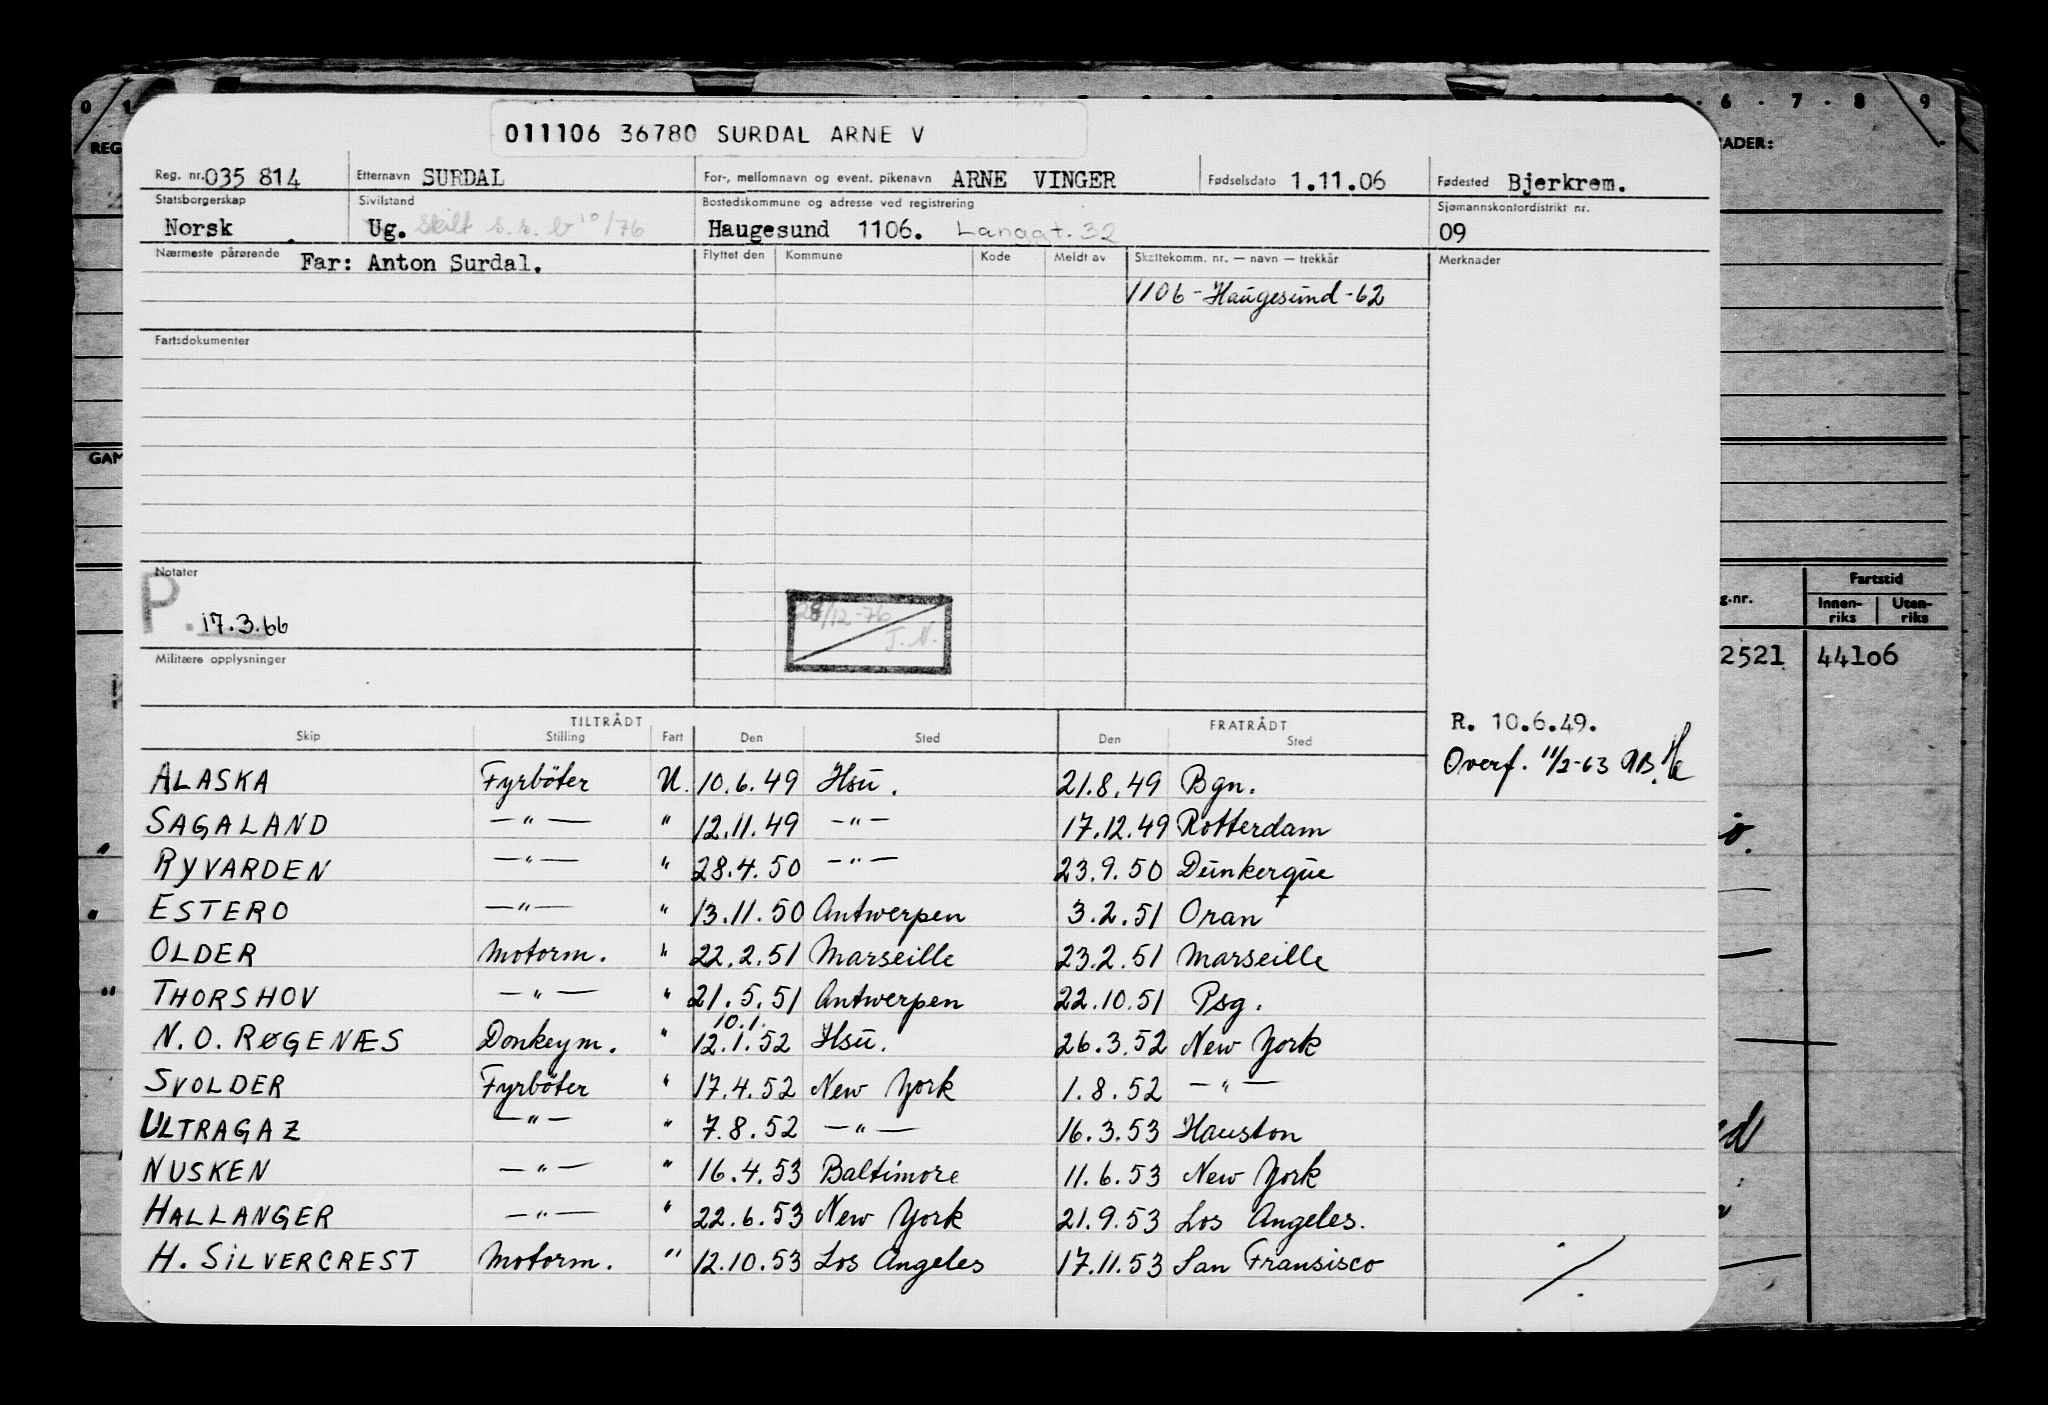 011106 36780 SURDAL ARNE V
Reg. nr. 035 814 Etternavn SURDAL For-, mellomnavn og event. pikenavn ARNE VINGER Fødselsdato 1.11.06 Fødested Bjerkrem.
Statsborgerskap Sivilstand Bostedskommune og adresse ved registrering Sjømannskontordistrikt nr.
Norsk Ug. Skilt s.s. b 10/76 Haugesund 1106. Langgt. 32 09
Nærmeste pårørende Far: Anton Surdal. Flyttet den Kommune Kode Meldt av Skattekomm. nr. — navn — trekkår Merknader
1106 - Haugesund - 62
Fartsdokumenter
Notater
P. 17.3.66
28/12-76
J. N.
Militære opplysninger
TILTRÅDT FRATRÅDT R. 10.6.49.
Skip Stilling Fart Den Sted Den Sted
Overf. 11/2-63
ALASKA Fyrböter U. 10.6.49 Hsu. 21.8.49 Bgn.
SAGALAND —"— " 12.11.49 —"— 17.12.49 Rotterdam
RYVARDEN —"— " 28.4.50 —"— 23.9.50 Dunkerque
ESTERO —"— " 13.11.50 Antwerpen 3.2.51 Oran
OLDER Motorm. " 22.2.51 Marseille 23.2.51 Marseille
THORSHOV —"— " 21.5.51 Antwerpen 22.10.51 Psg.
10.1.
N. O. RØGENÆS Donkeym. " 12.1.52 Hsu. 26.3.52 New York
SVOLDER Fyrböter " 17.4.52 New York 1.8.52 —"—
ULTRAGAZ —"— " 7.8.52 —"— 16.3.53 Houston
NUSKEN —"— " 16.4.53 Baltimore 11.6.53 New York
HALLANGER —"— " 22.6.53 New York 21.9.53 Los Angeles.
H. SILVERCREST Motorm. " 12.10.53 Los Angeles 17.11.53 San Fransisco
0 1
REG
GAM
6 . 7 . 8 9
ADER:
g.nr. Fartstid
Innen-riks Uten-riks
2521 44106